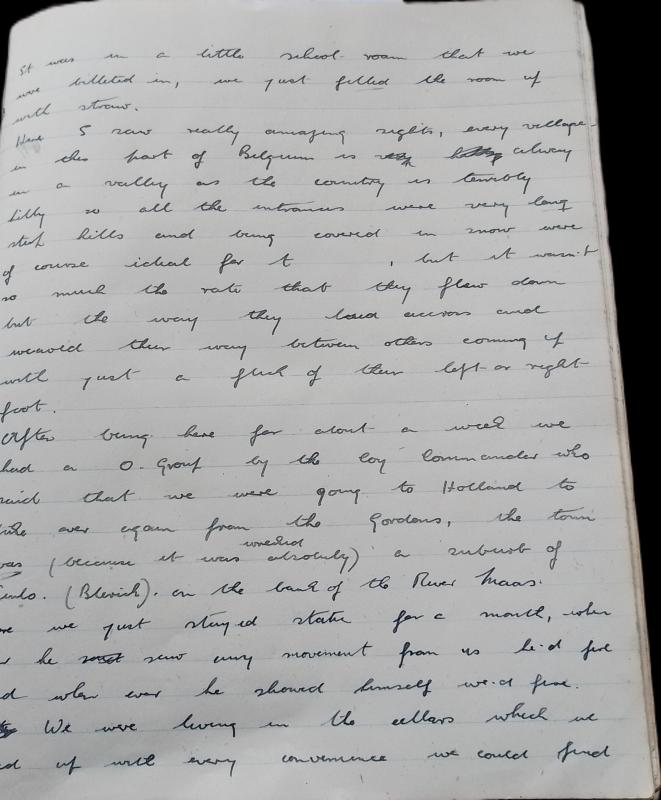 It was in a little school-room that we
were billeted in, we just filled the room up
with straw.
Here I saw really amazing sights, every village-
in this part of Belgium is alway
in a valley as the country is terribly
hilly so all the entrances were very long
steep hills and being covered in snow were
of course ideal for t , but it wasn't
so much the rate that they flew down
but the way they accross and
weaved their way between others coming up
with just a flick of their left or right
foot.
After being here for about a week we
had a O. Group by the Coy Commander who
said that we were going to Holland to
over again from the Gordons, the town
was (because it was absolutly wrecked) a suburb of
(Blerick). on the bank of the River Maas.
we just stayed static for a month, when
he saw any movement from us he'd fire
d when ever he showed himself we'd fire.
We were living in the cellars which we
d up with every convenience we could find